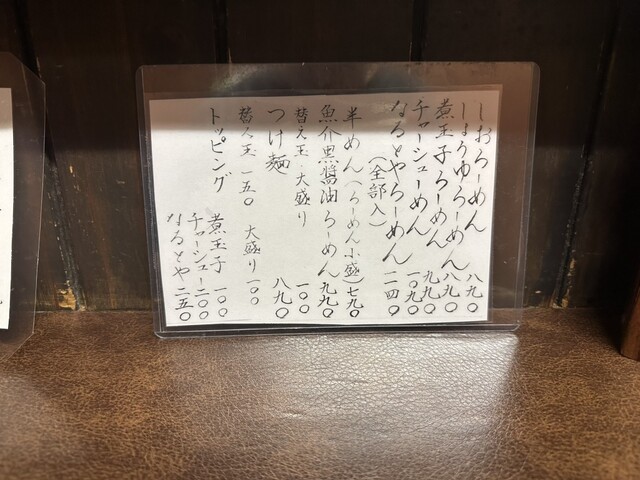 しおらーめん 八九〇
しょうゆらーめん 八九〇
煮玉子らーめん 九九〇
チャーシューめん 一〇九〇
なるとやらーめん 一二四〇
(全部入)
半めん(らーめん小盛) 七九〇
魚介黒醤油らーめん 九九〇
替え玉・大盛り 一〇〇
つけ麺 八九〇
替え玉 一五〇 大盛り 一〇〇
トッピング 煮玉子 一〇〇
チャーシュー 二〇〇
なるとや 二五〇